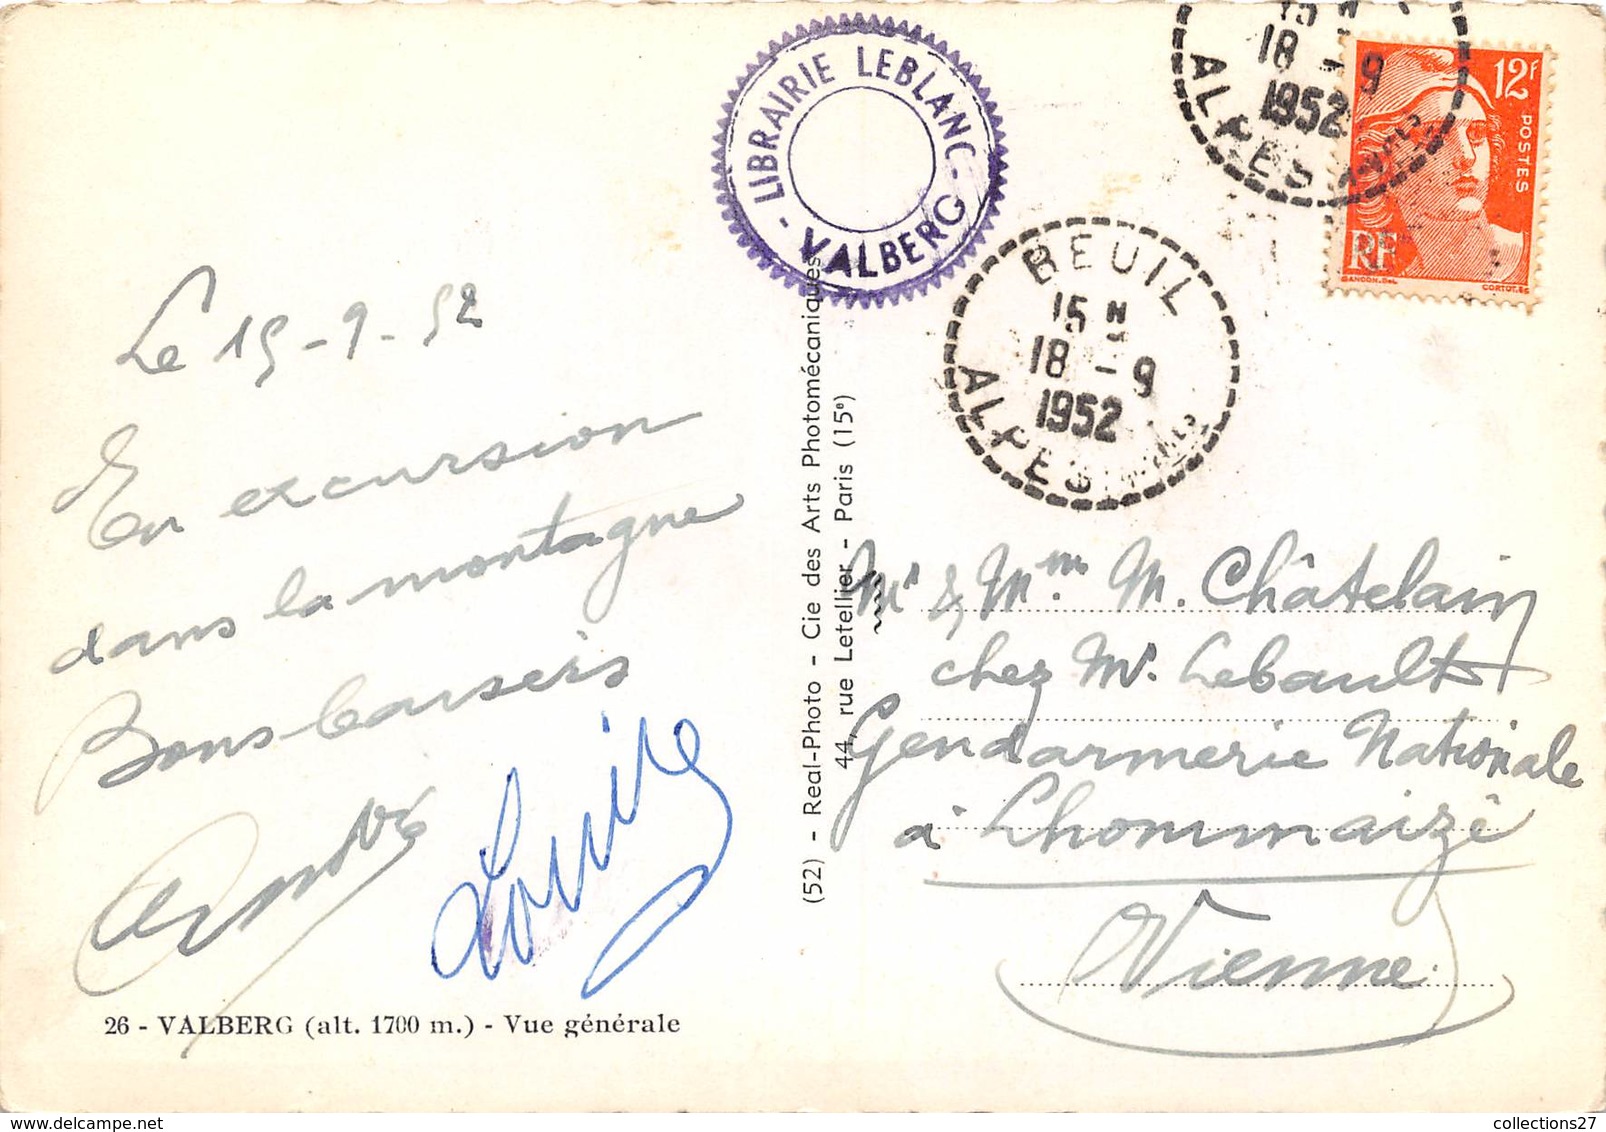 Le 15-9-52
En excursion
dans la montagne
Bons baisers
Louise
26 - VALBERG (alt. 1700 m.) - Vue générale
LIBRAIRIE LEBLANC
- VALBERG -
(52) - Real-Photo - Cie des Arts Photomécaniques
44, rue Letellier - Paris (15e)
15
18 - 9
1952
ALPES
BEUIL
15 H
18 - 9
1952
ALPES
12F
POSTES
RF
GANDON.DEL
CORTOT.SC
Mr & Mme M. Châtelain
chez Mr. Lebault
Gendarmerie Nationale
à Lhommaizé
Vienne
collections27